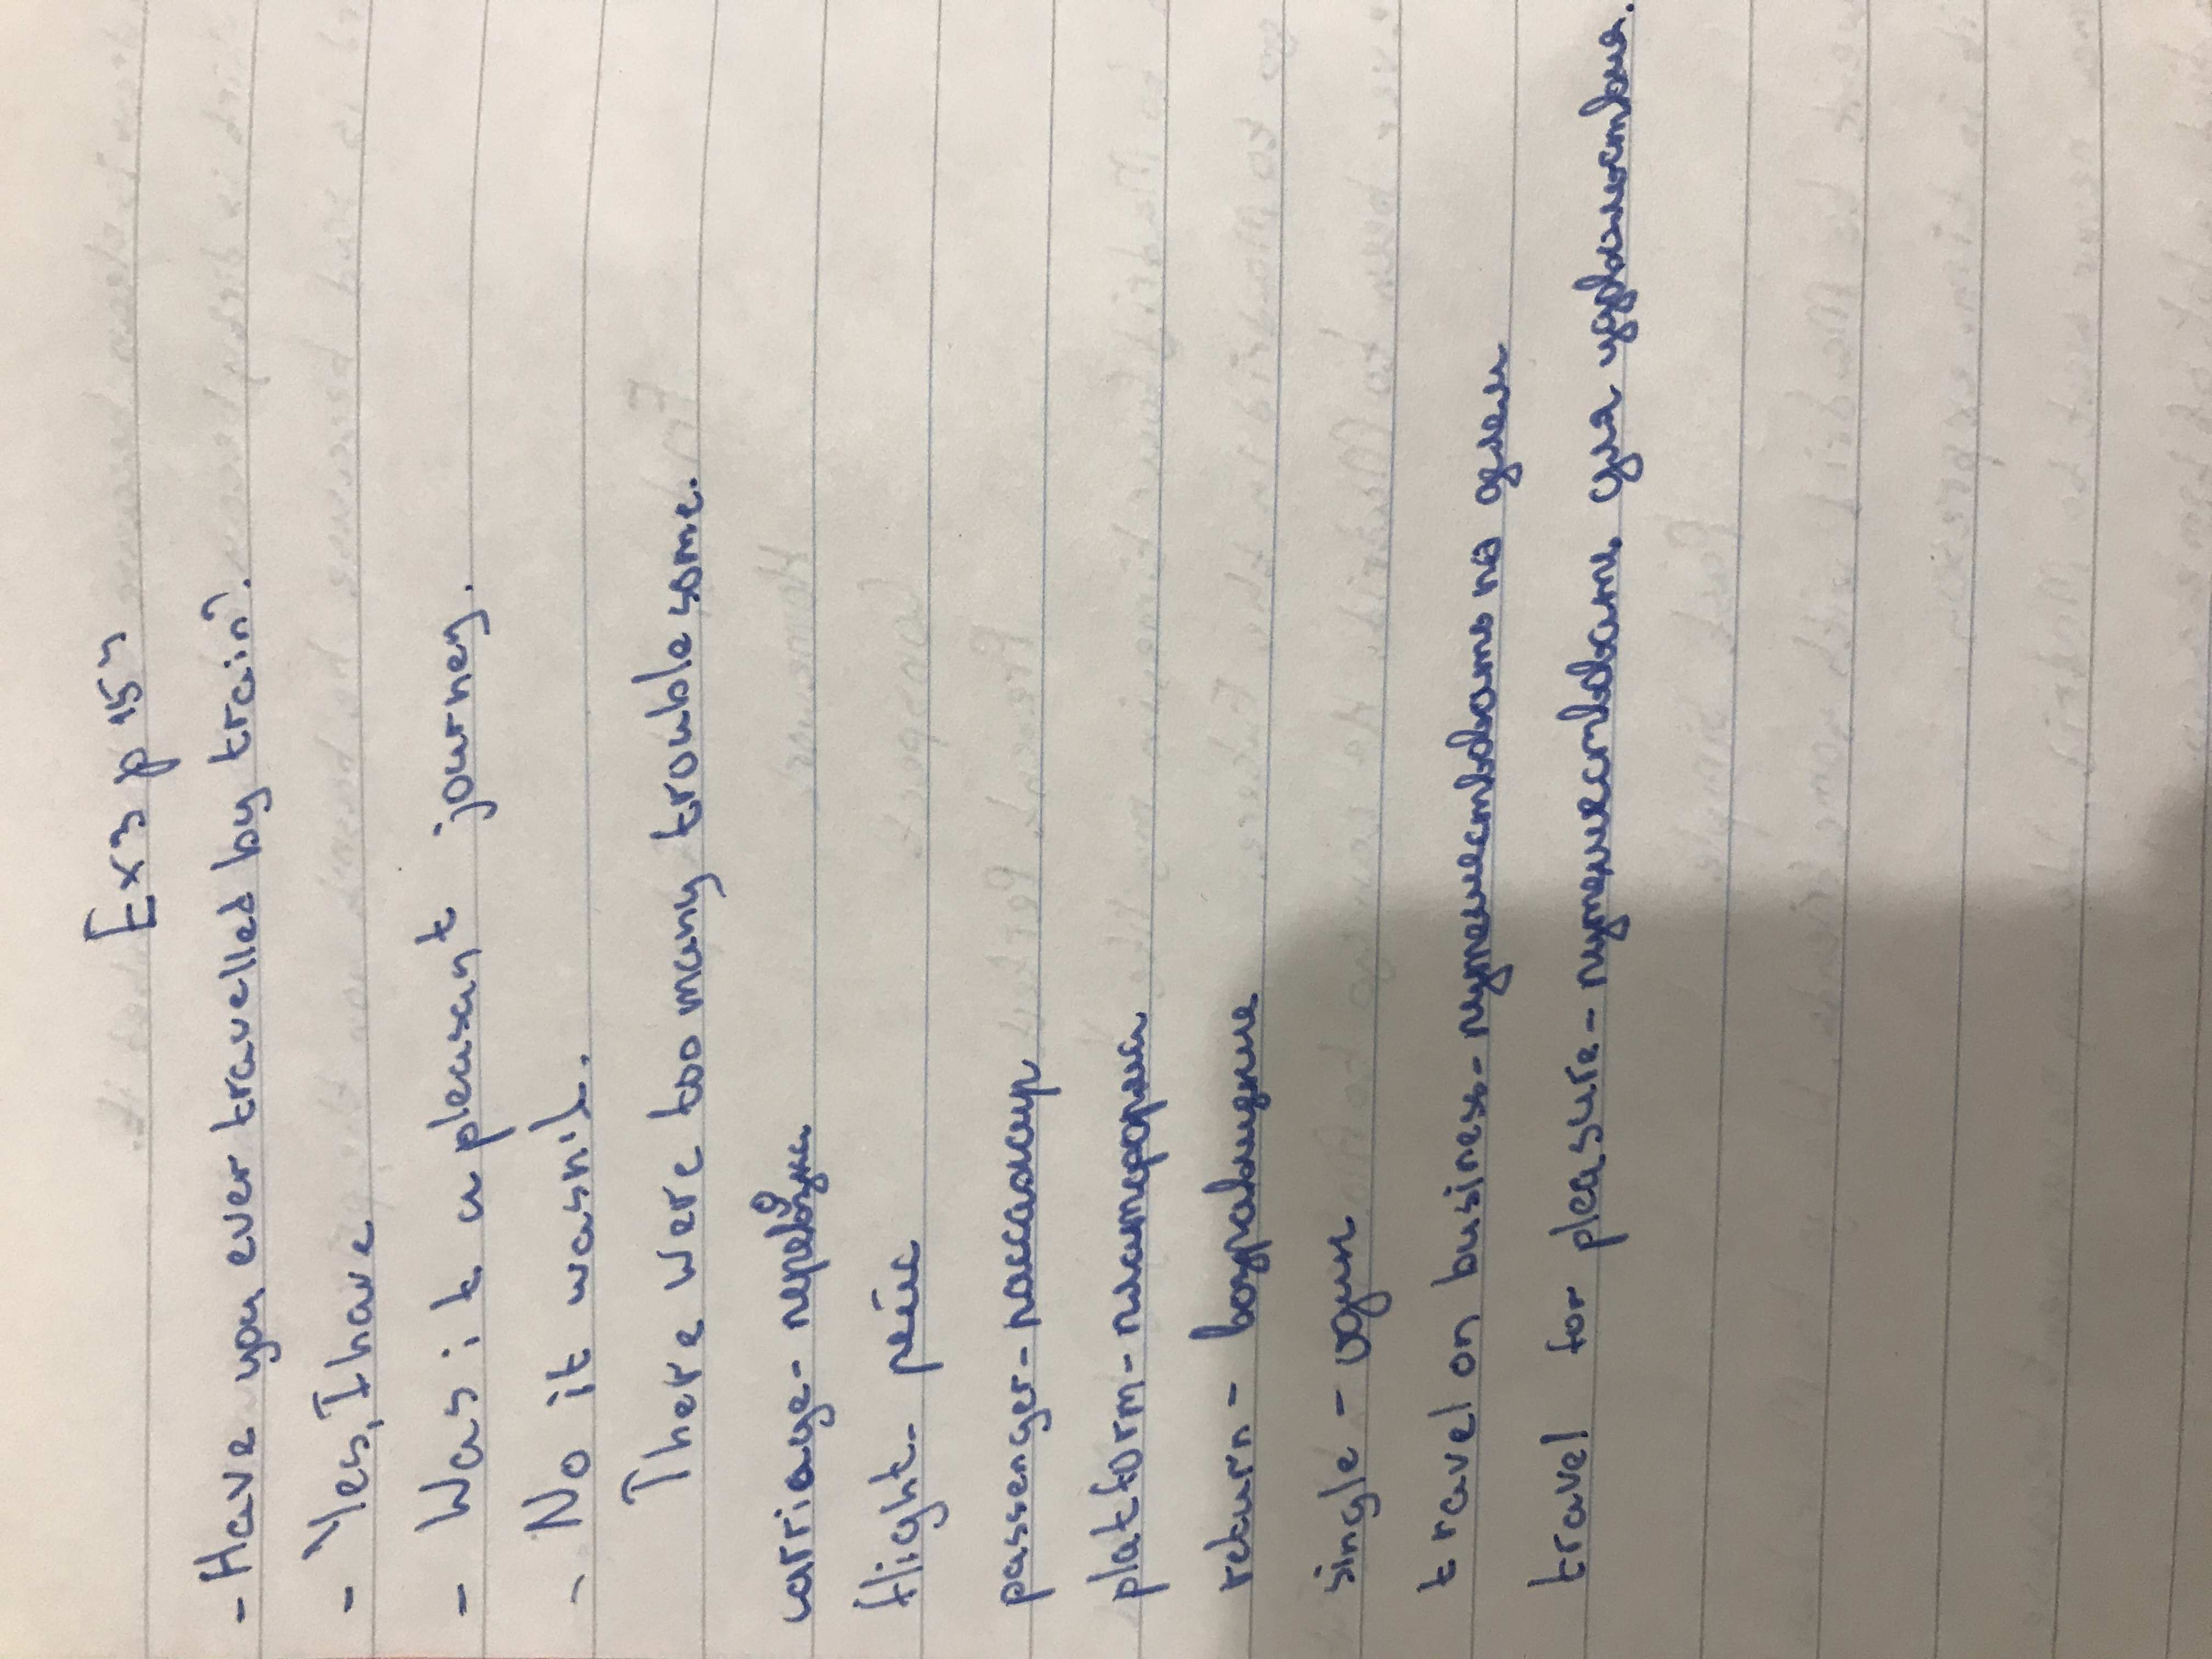 Ex3 p 157
- Have you ever travelled by train?.
- Yes, I have
- Was it a pleasant journey.
- No it wasn't.
There were too many trouble some.
carriage - перевозка
flight - рейс
passenger - пассажир
platform - платформа
return - возвращение
single - один
travel on business - путешествовать на делам
travel for pleasure - путешествовать для удовольствия.